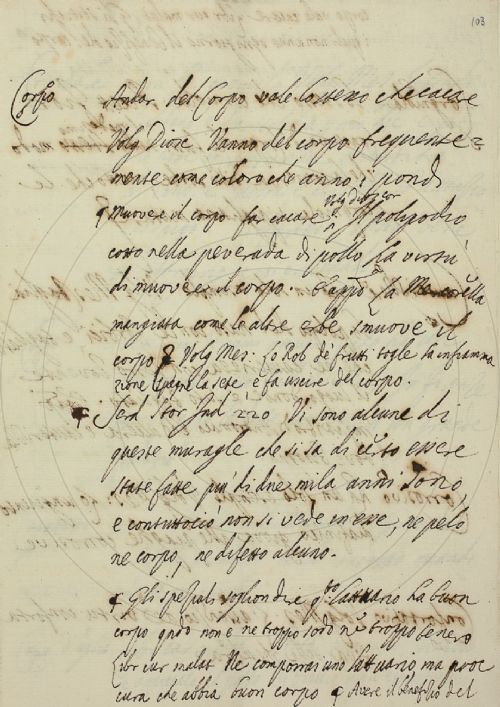 103
Corpo Andar del Corpo vale lo stesso che cacare
Volg Diosc Vanno del corpo frequente=
mente come coloro che anno i pondi
Muovere il corpo far cacare Volg Diosc Il polipodio
cotto nella peverada di pollo ha virtù
di muovere il corpo. La Mercorella
mangiata come le altre erbe smuove il
corpo Volg Mes: Lo Rob de frutti togle la infiamma
zione spegne la sete e fa uscire del corpo.
Serd Stor Ind 220 Vi sono alcune di
queste muragle che si sa di certo essere
state fatte più di due mila anni sono,
e contuttociò non si vede in esse, ne pelo
ne corpo, ne difetto alcuno.
Gli speziali voglion dire lattuario ha buon
corpo qndo non è ne troppo sodo ne troppo tenero
Libr cur malat Ne comporrai uno lattuario, ma proc
cura che abbia buon corpo Avere il benefizio del